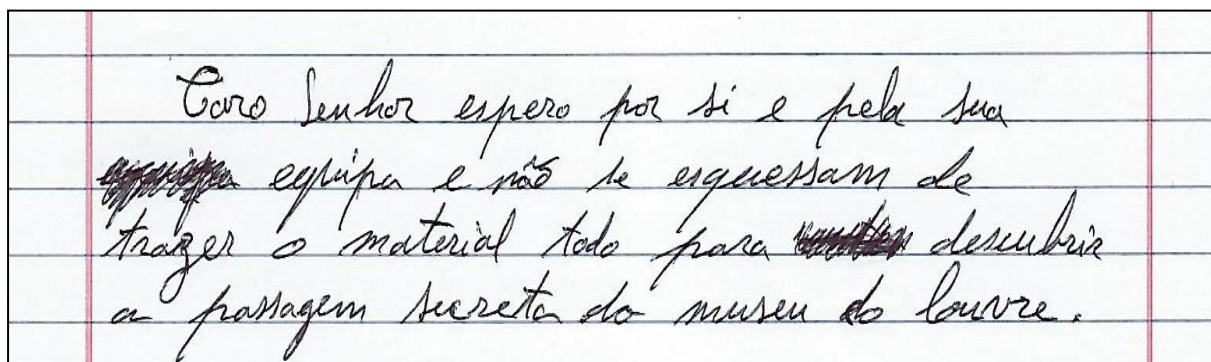 Caro Senhor espero por si e pela sua
equipa e não se esquessam de
trazer o material todo para descubrir
a passagem secreta do museu do louvre.